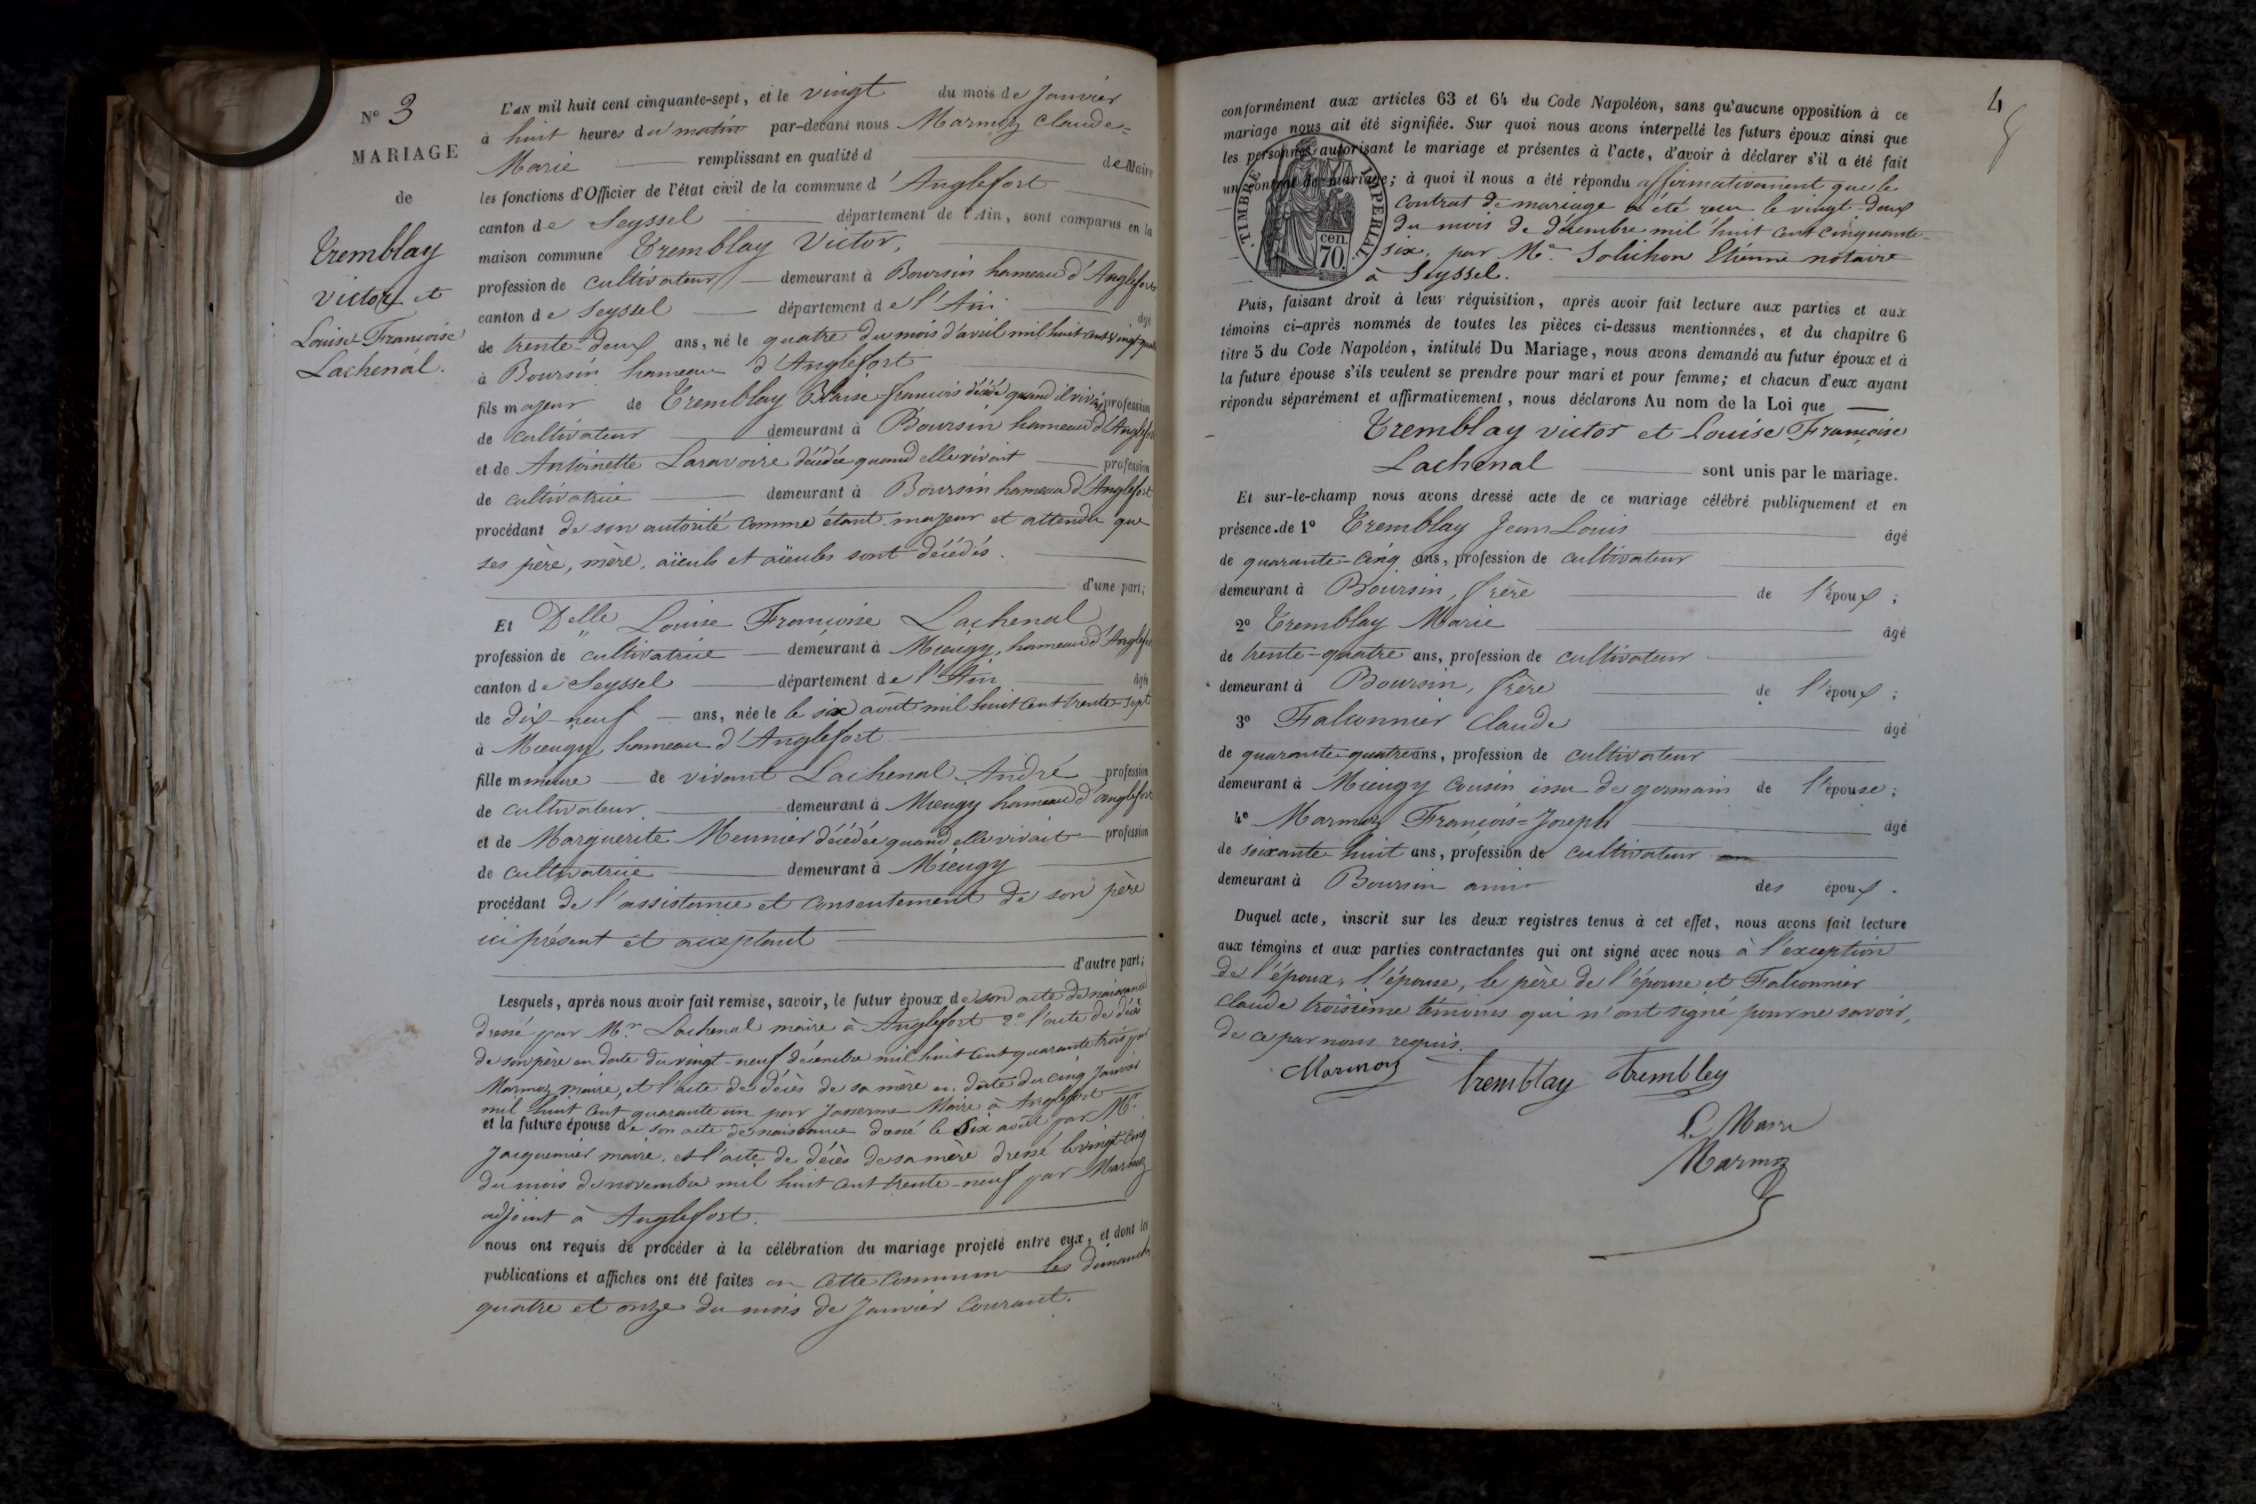 N° 3
MARIAGE
de
Tremblay
Victor et
Louise Françoise
Lachenal.
L'AN mil huit cent cinquante-sept, et le vingt du mois de Janvier
à huit heures du matin par-devant nous Marmoz Claude=
Marie remplissant en qualité d de Maire
les fonctions d'Officier de l'état civil de la commune d'Anglefort
canton de Seyssel département de l'Ain, sont comparus en la
maison commune Tremblay Victor,
profession de cultivateur demeurant à Boursin hameau d'Anglefort
canton de Seyssel département de l'Ain âgé
de trente-deux ans, né le quatre du mois d'avril mil huit cent vingt-quatre
à Boursin hameau d'Anglefort
fils majeur de Tremblay Blaise-françois décédé quand il vivait profession
de cultivateur demeurant à Boursin hameau d'Anglefort
et de Antoinette Laravoire décédée quand elle vivait profession
de cultivatrice demeurant à Boursin hameau d'Anglefort
procédant de son autorité comme étant majeur et attendu que
ses père, mère, aïeuls et aïeules sont décédés.
d'une part;
Et Delle Louise Françoise Lachenal
profession de cultivatrice demeurant à Mieugy, hameau d'Anglefort
canton de Seyssel département de l'Ain âgée
de dix-neuf ans, née le le six août mil huit cent trente-sept
à Mieugy, hameau d'Anglefort
fille mineure de vivant Lachenal André profession
de cultivateur demeurant à Mieugy hameau d'anglefort
et de Marguerite Meunier décédée quand elle vivait profession
de cultivatrice demeurant à Mieugy
procédant de l'assistance et consentement de son père
ici présent et acceptant
d'autre part;
Lesquels, après nous avoir fait remise, savoir, le futur époux de son acte de naissance
dressé par Mr. Lachenal maire à Anglefort 2° l'acte de décès
de son père en date du vingt-neuf décembre mil huit cent quarante trois par
Marmoz maire, et l'acte de décès de sa mère en date du cinq Janvier
mil huit cent quarante un par Maire à Anglefort
et la future épouse de son acte de naissance dressé le six août par Mr.
Jacquemier maire, et l'acte de décès de sa mère dressé le vingt-cinq
du mois de novembre mil huit cent trente-neuf par Marmoz
adjoint à Anglefort.
nous ont requis de procéder à la célébration du mariage projeté entre eux, et dont les
publications et affiches ont été faites en cette commune les dimanches
quatre et onze du mois de Janvier courant.
4
conformément aux articles 63 et 64 du Code Napoléon, sans qu'aucune opposition à ce
mariage nous ait été signifiée. Sur quoi nous avons interpellé les futurs époux ainsi que
les personnes autorisant le mariage et présentes à l'acte, d'avoir à déclarer s'il a été fait
un contrat de mariage; à quoi il nous a été répondu affirmativement que le
contrat de mariage a été reçu le vingt-deux
du mois de décembre mil huit cent cinquante-
six, par Me. Soluhon Etienne notaire
à Seyssel.
TIMBRE IMPERIAL
cen.
70
Puis, faisant droit à leur réquisition, après avoir fait lecture aux parties et aux
témoins ci-après nommés de toutes les pièces ci-dessus mentionnées, et du chapitre 6
titre 5 du Code Napoléon, intitulé Du Mariage, nous avons demandé au futur époux et à
la future épouse s'ils veulent se prendre pour mari et pour femme; et chacun d'eux ayant
répondu séparément et affirmativement, nous déclarons Au nom de la Loi que
Tremblay victor et Louise Françoise
Lachenal sont unis par le mariage.
Et sur-le-champ nous avons dressé acte de ce mariage célébré publiquement et en
présence de 1° Tremblay Jean Louis âgé
de quarante-cinq ans, profession de cultivateur
demeurant à Boursin, frère de l'époux;
2° Tremblay Marie âgé
de trente-quatre ans, profession de cultivateur
demeurant à Boursin, frère de l'époux;
3° Falconnier Claude âgé
de quarante-quatre ans, profession de cultivateur
demeurant à Mieugy cousin issu de germain de l'épouse;
4° Marmoz François=Joseph âgé
de soixante huit ans, profession de cultivateur
demeurant à Boursin ami des époux.
Duquel acte, inscrit sur les deux registres tenus à cet effet, nous avons fait lecture
aux témoins et aux parties contractantes qui ont signé avec nous à l'exception
de l'époux, l'épouse, le père de l'épouse et Falconnier
Claude troisième témoins qui n'ont signé pour ne savoir,
de ce par nous requis.
Marmoz tremblay trembley
Le Maire
Marmoz